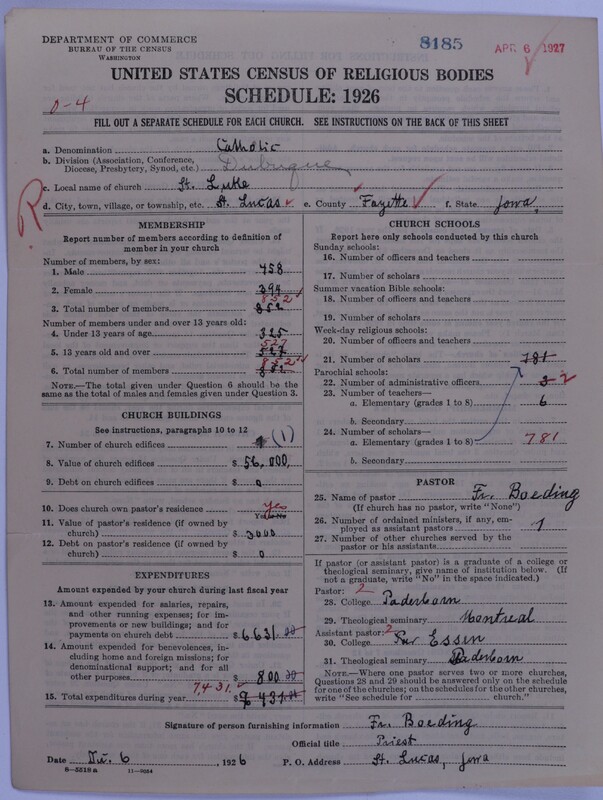 DEPARTMENT OF COMMERCE
BUREAU OF THE CENSUS
WASHINGTON
8185
APR 6 1927
UNITED STATES CENSUS OF RELIGIOUS BODIES
SCHEDULE: 1926
0-4
FILL OUT A SEPARATE SCHEDULE FOR EACH CHURCH. SEE INSTRUCTIONS ON THE BACK OF THIS SHEET
a. Denomination Catholic
b. Division (Association, Conference, Diocese, Presbytery, Synod, etc.) Dubuque
c. Local name of church St. Luke
d. City, town, village, or township, etc. St. Lucas e. County Fayette f. State Iowa
R
MEMBERSHIP
Report number of members according to definition of
member in your church
Number of members, by sex:
1. Male 458
2. Female 394
852
3. Total number of members 852
Number of members under and over 13 years old:
4. Under 13 years of age 325
527
5. 13 years old and over 527
852
6. Total number of members 852
NOTE.—The total given under Question 6 should be the
same as the total of males and females given under Question 3.
CHURCH BUILDINGS
See instructions, paragraphs 10 to 12
7. Number of church edifices 1 (1)
8. Value of church edifices $ 56,000
9. Debt on church edifices $ 0
10. Does church own pastor's residence yes
Yes or No
11. Value of pastor's residence (if owned by
church) $ 3000
12. Debt on pastor's residence (if owned by
church) $ 0
EXPENDITURES
Amount expended by your church during last fiscal year
13. Amount expended for salaries, repairs,
and other running expenses; for im-
provements or new buildings; and for
payments on church debt $ 6631.00
14. Amount expended for benevolences,
including home and foreign missions; for
denominational support; and for all
other purposes $ 800.00
7431.
15. Total expenditures during year $
CHURCH SCHOOLS
Report here only schools conducted by this church
Sunday schools:
16. Number of officers and teachers
17. Number of scholars
Summer vacation Bible schools:
18. Number of officers and teachers
19. Number of scholars
Week-day religious schools:
20. Number of officers and teachers
21. Number of scholars 181
Parochial schools:
22. Number of administrative officers 3 2
23. Number of teachers—
a. Elementary (grades 1 to 8) 6
b. Secondary
24. Number of scholars—
a. Elementary (grades 1 to 8) 781
b. Secondary
PASTOR
25. Name of pastor Fr. Boeding
(If church has no pastor, write "None")
26. Number of ordained ministers, if any, em-
ployed as assistant pastors 1
27. Number of other churches served by the
pastor or his assistants
If pastor (or assistant pastor) is a graduate of a college or
theological seminary, give name of institution below. (If
not a graduate, write "No" in the space indicated.)
Pastor: 2
28. College Paderborn
29. Theological seminary Montreal
Assistant pastor: 2
30. College Essen
31. Theological seminary Paderborn
NOTE.—Where one pastor serves two or more churches,
Questions 28 and 29 should be answered only on the schedule
for one of the churches; on the schedules for the other churches,
write "See schedule for church."
Signature of person furnishing information Fr. Boeding
Official title Priest
Date 6, 1926 P. O. Address St. Lucas, Iowa
8-5518a 11-9084